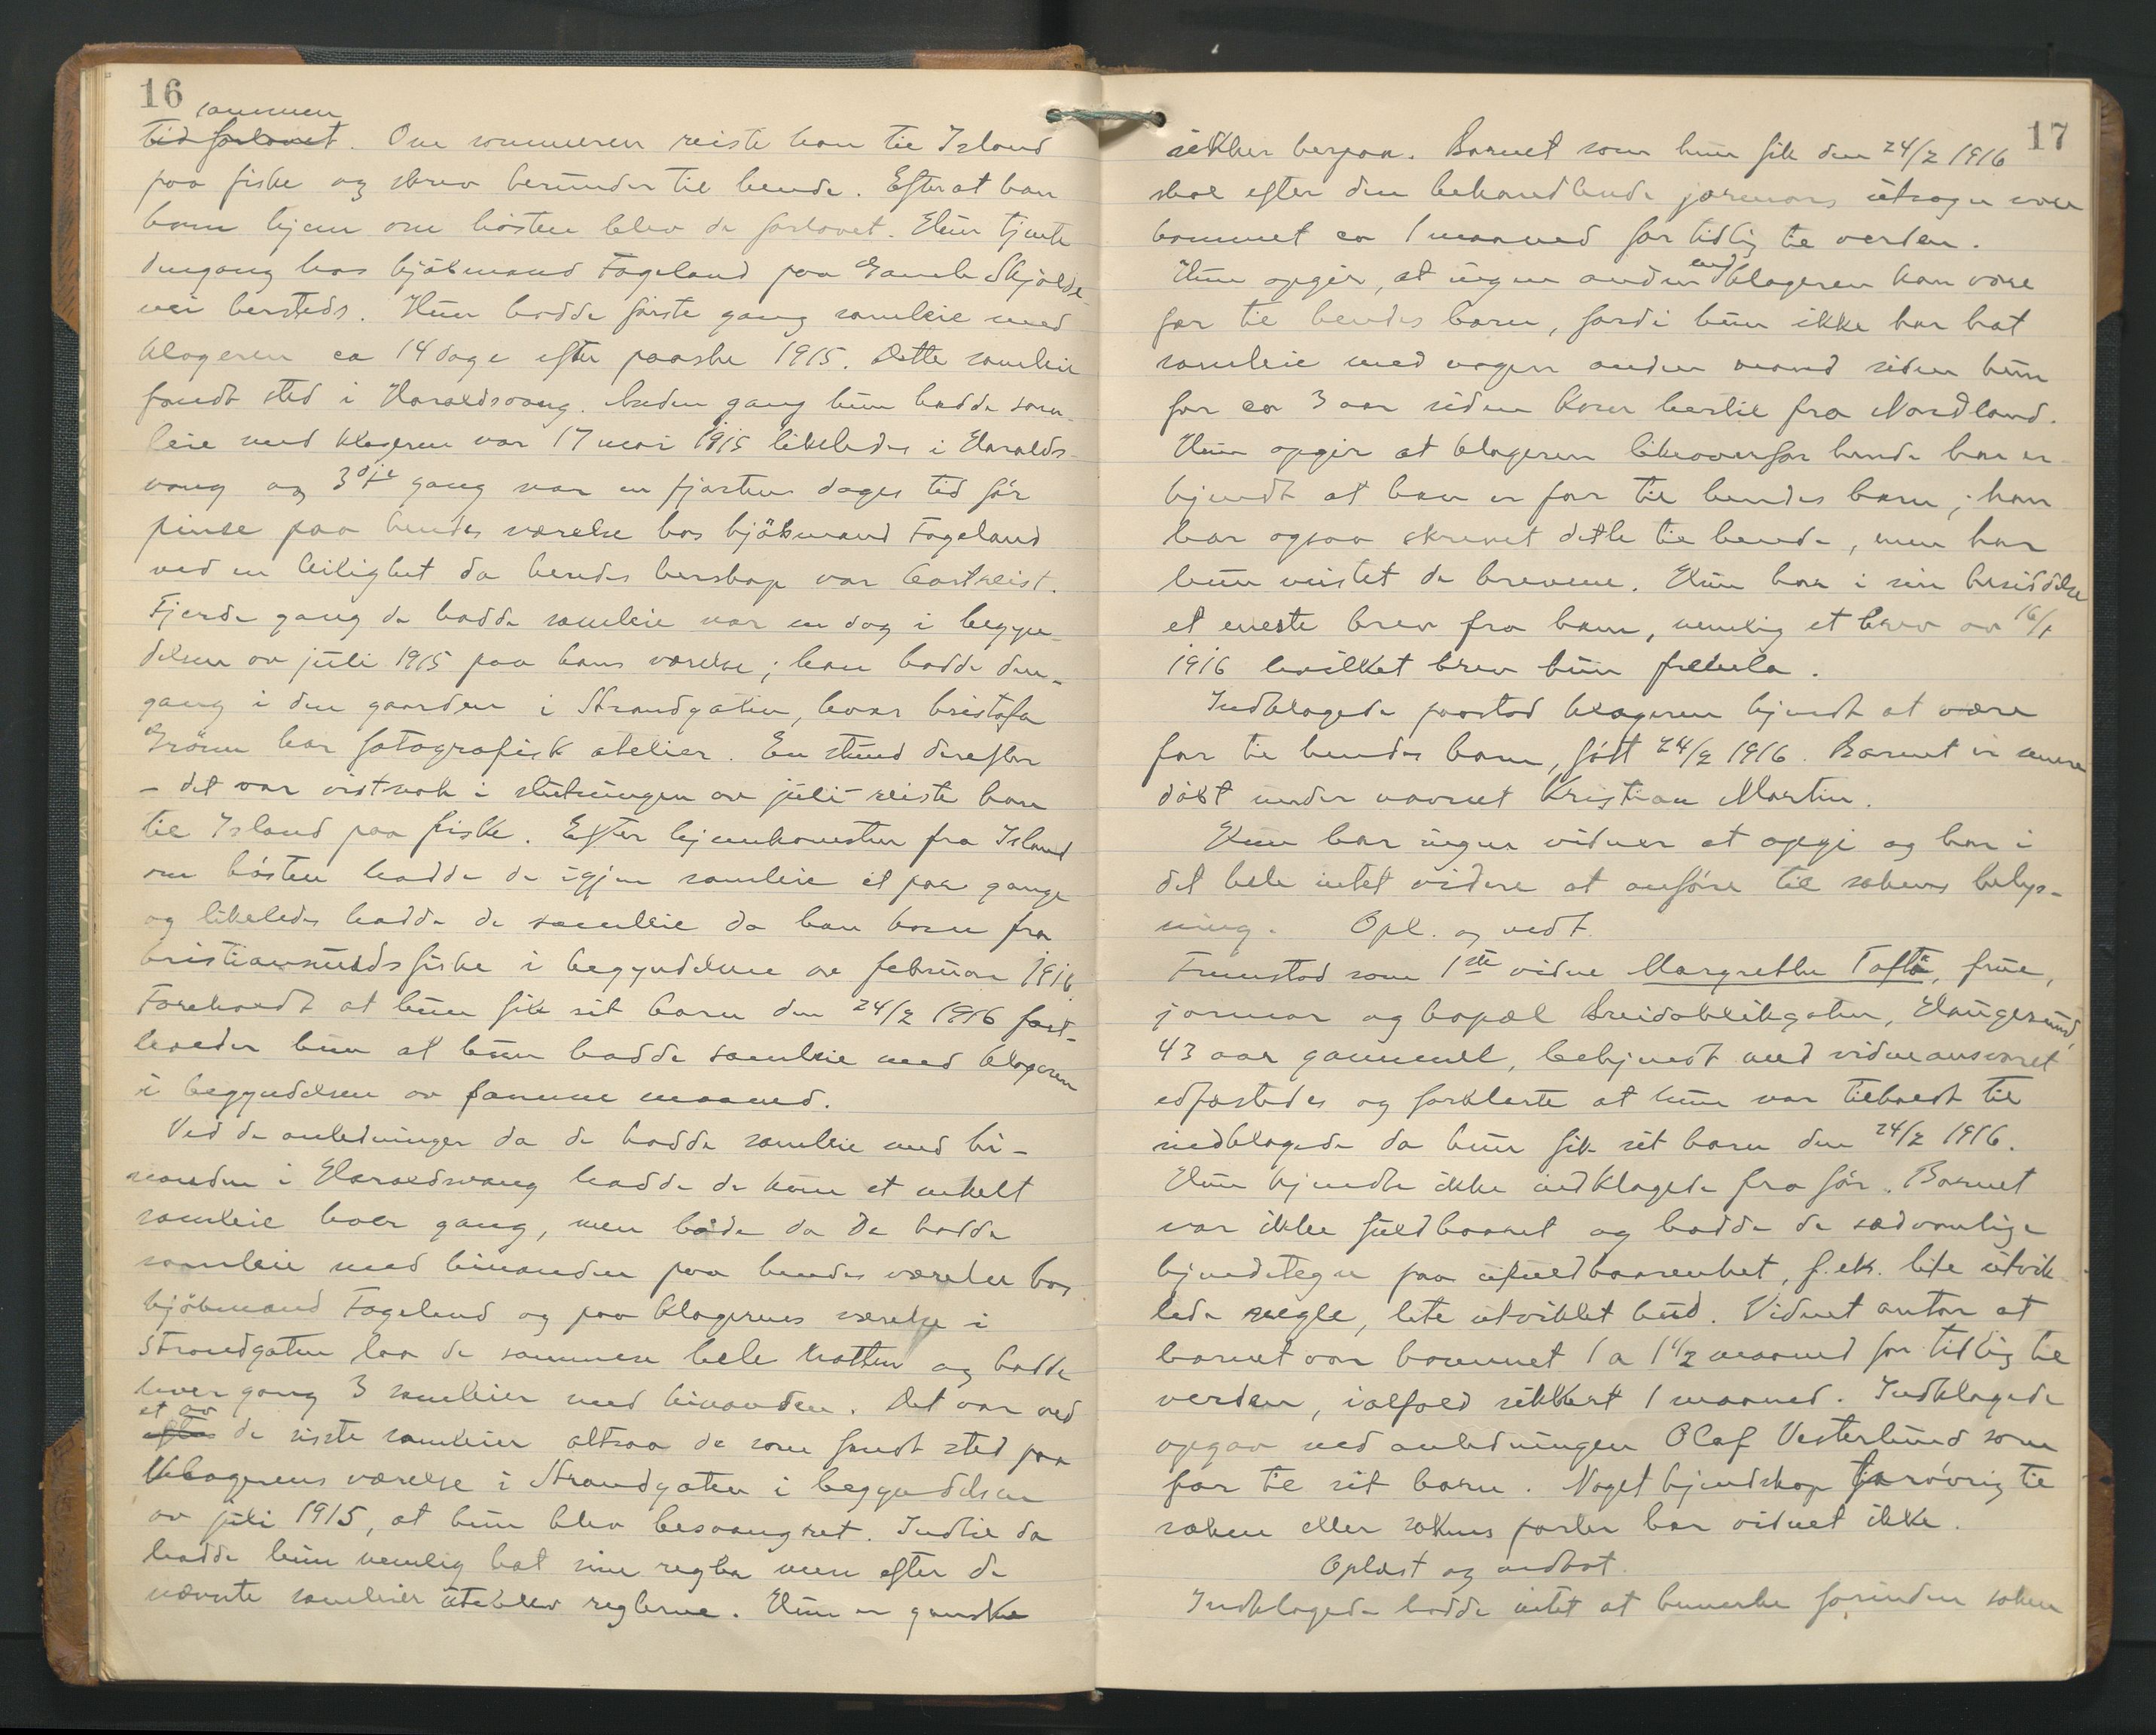 16
sammen
tid forlovet. Om sommeren reiste han til Island
paa fiske og skrev herunder til hende. Efterat han
kom hjem om høsten blev de forlovet. Hun tjente
dengang hos kjøbmand Fageland paa Gamle Skjolde
vei hersteds. Hun hadde første gang samleie med
klageren ca 14 dage efter paaske 1915. Dette samleie
fandt sted i Haraldsvang. Anden gang hun hadde sam
leie med klageren var 17 mai 1915 likeledes i Haralds
vang og 3dje gang var en fjorten dages tid før
pinse paa hendes værelse hos kjøbmand Fageland
ved en leilighet da hendes herskap var bortreist.
Fjerde gang de hadde samleie var en dag i begyn-
delsen av juli 1915 paa hans værelse; han hadde den-
gang i den gaarden i Strandgaten, hvor Kristofa
Grønn har fotografisk atelier. En stund derefter
- det var vistnok i slutningen av juli - reiste han
til Island paa fiske. Efter hjemkomsten fra Island
om høsten hadde de igjen samleie et par gange
og likeledes hadde de samleie da han kom fra
kristiansundsfiske i begyndelsen av februar 1916
Foreholdt at hun fik sit barn den 24/2 1916 fast-
holder hun at hun hadde samleie med klageren
i begyndelsen av samme maaned.
Ved de anledninger da de hadde samleie med hi-
nanden i Haraldsvang hadde de kun et enkelt
samleie hver gang, men både da De hadde
samleie med hinanden paa hendes værelse hos
kjøbmand Fageland og paa klagerens værelse i
Strandgaten laa de sammen hele natten og hadde
hver gang 3 samleier med hinanden. Det var ved
et av
efter de siste samleier altsaa de som fandt sted paa
klagerens værelse i Strandgaten i begyndelsen
av juli 1915, at hun blev besvangret. Indtil da
hadde hun nemlig hat sine regler men efter de
nævnte samleier uteblev reglerne. Hun er ganske
17
sikker herpaa. Barnet som hun fik den 24/2 1916
skal efter den behandlende jormors utsagn være
kommet ca 1 maaned for tidlig til verden.
Hun opgir, at ingen anden end klageren kan være
far til hendes barn, fordi hun ikke har hat
samleie med nogen anden mand siden hun
for ca 3 aar siden kom hertil fra Nordland.
Hun opgir at klageren likeoverfor hende har er
kjendt at han er far til hendes barn; han
har ogsaa skrevet dette til hende, men har
hun mistet de brevene. Hun har i sin besiddelse
et eneste brev fra ham, nemlig et brev av 16/1
1916 hvilket brev hun fremla.
Indklagede paastod klageren kjendt at være
far til hendes barn, født 24/2 1916. Barnet er senere
døbt under navnet Kristian Martin.
Hun har ingen vidner at opgi og har i
det hele intet videre at anføre til sakens belys-
ning. Opl. og vedt.
Fremstod som 1ste vidne Margrethe Toftø, frue,
jormor og bopæl Breidablikgaten, Haugesund,
43 aar gammel, bekjendt med vidneansvaret
edfæstedes og forklarte at hun var tilkaldt til
indklagede da hun fik sit barn den 24/2 1916.
Hun kjendte ikke indklagede fra før. Barnet
var ikke fuldbaaret og hadde de sædvanlige
kjendetegn paa ufuldbaarenhet, f.eks. lite utvik
lede negle, lite utviklet hud. Vidnet antar at
barnet var kommet 1 a 1 1/2 maaned for tidlig til
verden, ialfald sikkert 1 maaned. Indklagede
opgav ved anledningen Olaf Vesterlund som
far til sit barn. Noget kjendskap forøvrig til
saken eller sakens parter har vidnet ikke.
Oplæst og vedtat.
Indklagede hadde intet at bemerke forinden saken